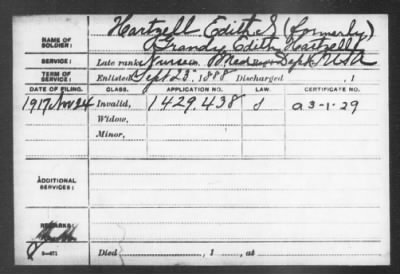 Hartzell Edith S (formerly)
NAME OF SOLDIER: Grandy, Edith Hartzell
SERVICE: Late rank, Nurse, Med Dept, USA
TERM OF SERVICE: Enlisted Sept 28 1888 Discharged , 1
DATE OF FILING. CLASS. APPLICATION NO. LAW. CERTIFICATE NO.
1917 Nov 24 Invalid, 1429.438 a 3-1-29
Widow,
Minor,
ADDITIONAL SERVICES:
REMARKS:
3-471
Died , 1 , at